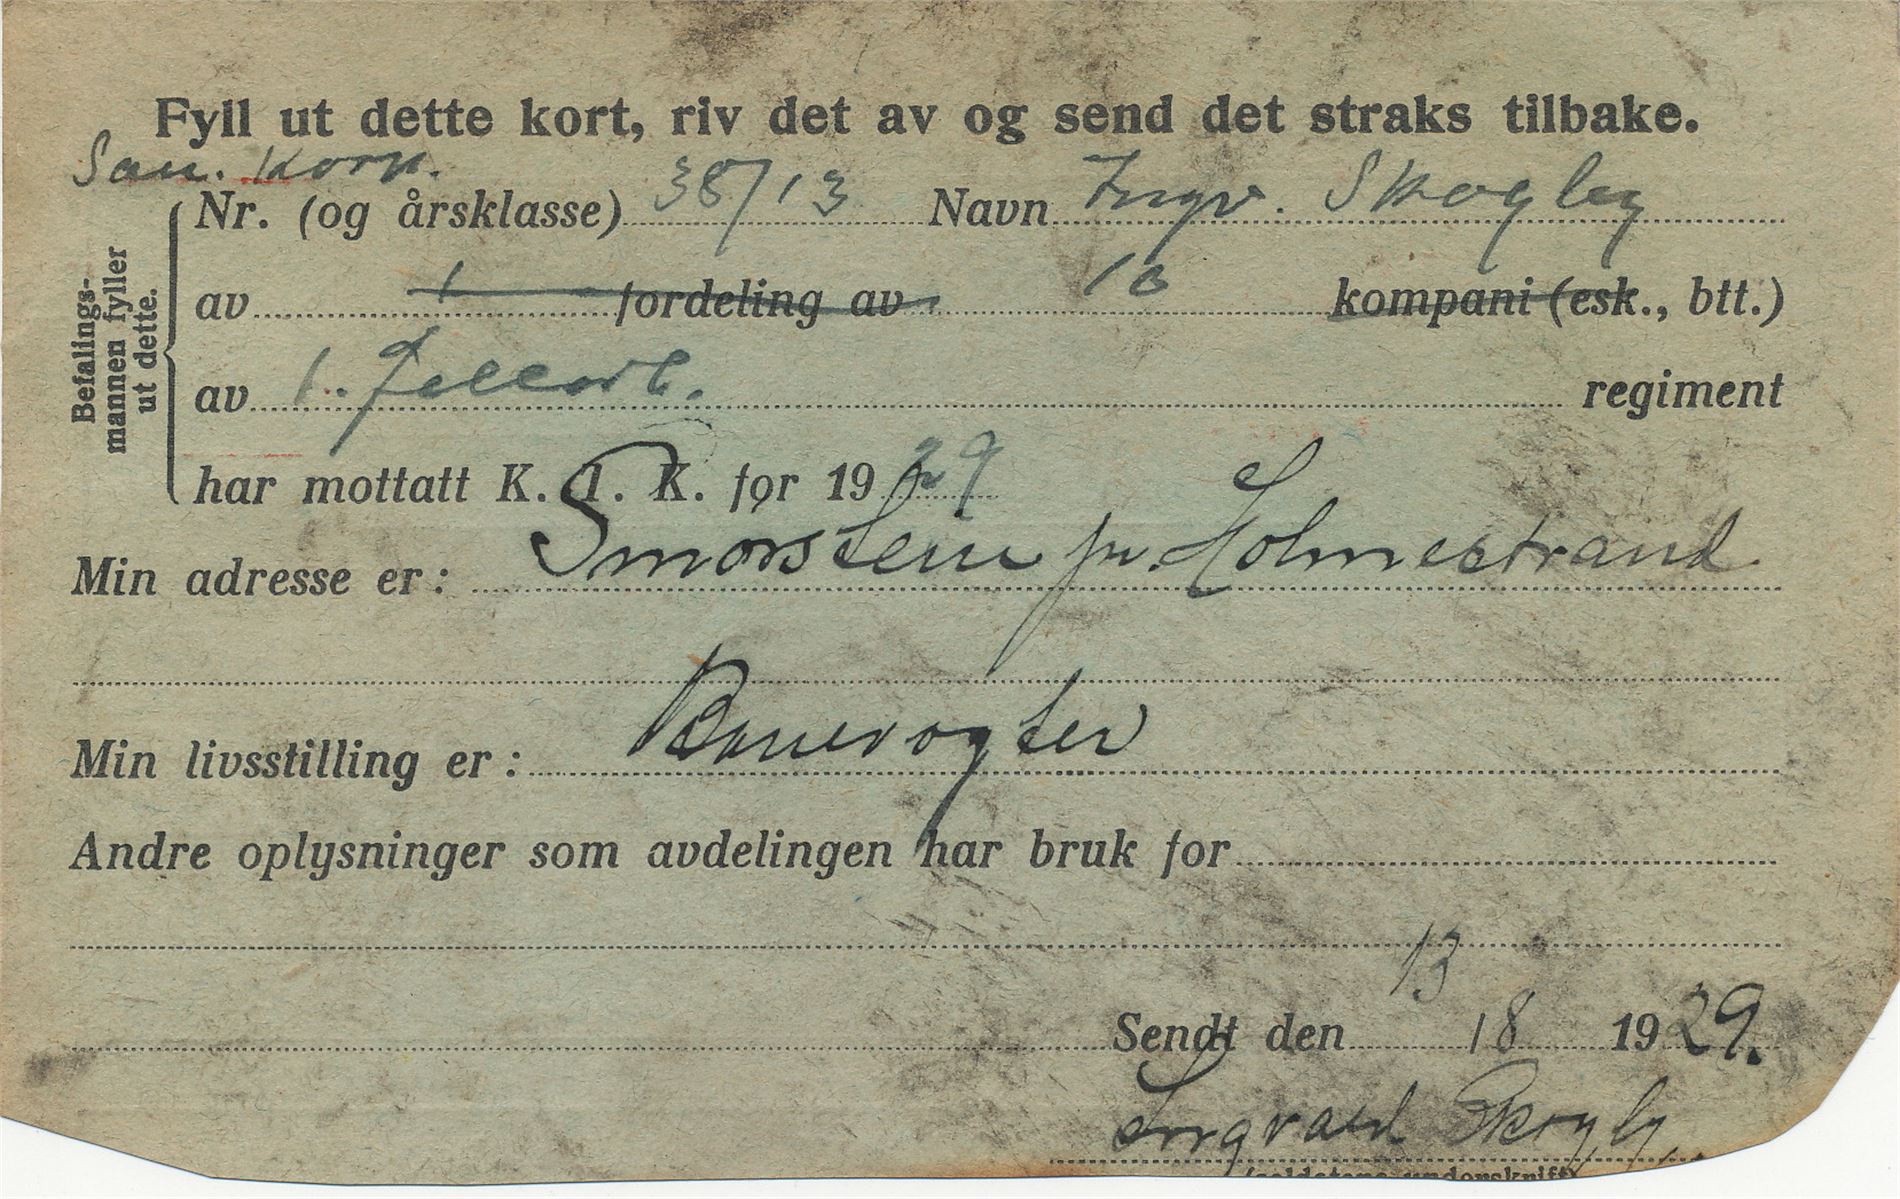 Fyll ut dette kort, riv det av og send det straks tilbake.
San. Korp.
Befalings-
mannen fyller
ut dette.
Nr. (og årsklasse) 38/13 Navn Ingv. Skogley
av 1 fordeling av 10 kompani (esk., btt.)
av 1. regiment
har mottatt K. T. K. for 1929
Min adresse er: Smørstein pr. Holmestrand
Min livsstilling er: Banevogter
Andre oplysninger som avdelingen har bruk for
Sendt den 13/8 1929.
Ingvald Skogly
(soldatens underskrift)